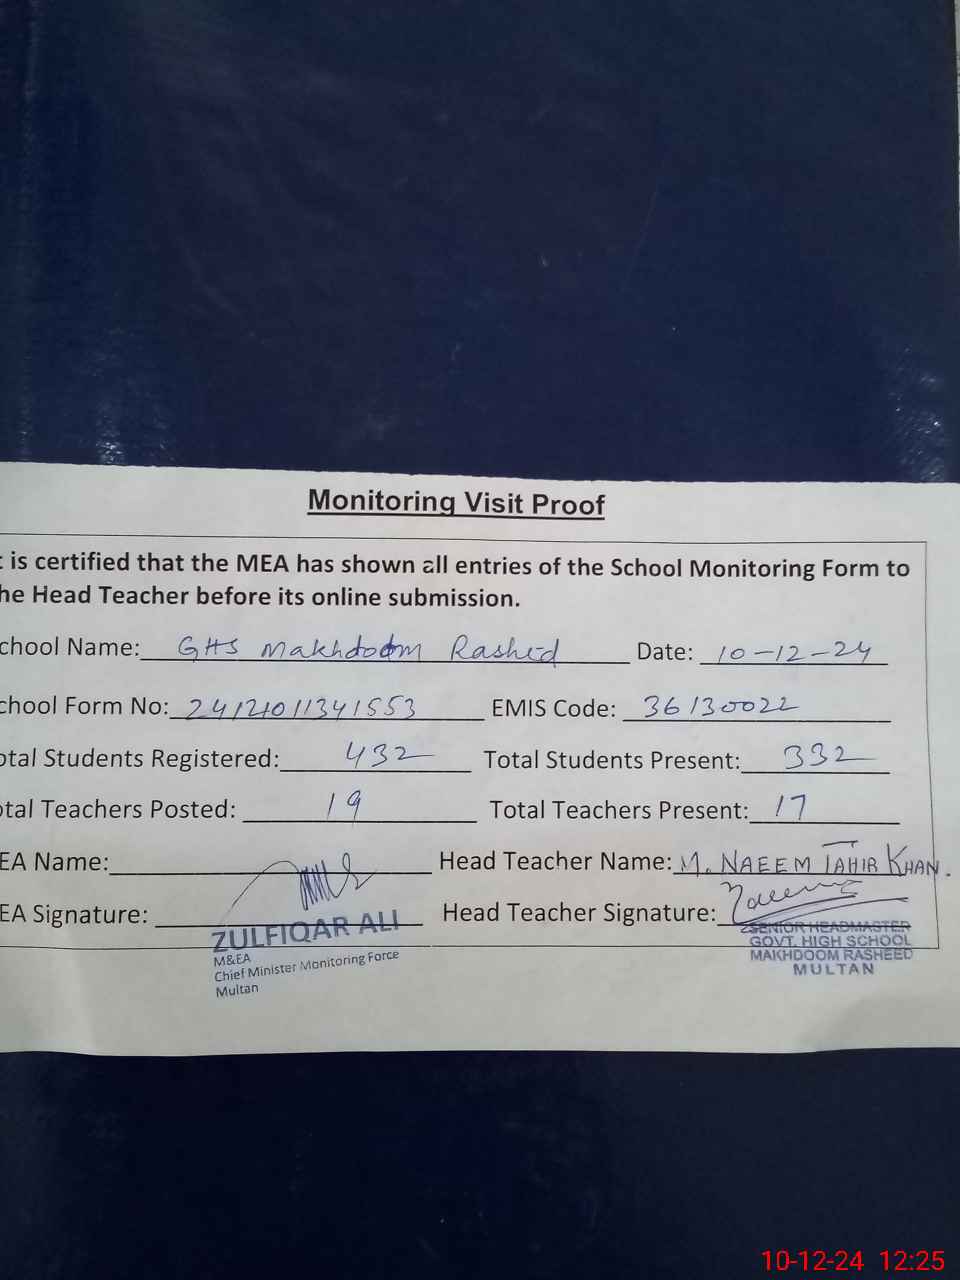 Monitoring Visit Proof
t is certified that the MEA has shown all entries of the School Monitoring Form to
he Head Teacher before its online submission.
chool Name: GHS Makhdoom Rashid Date: 10-12-24
chool Form No: EMIS Code: 36130022
otal Students Registered: 432 Total Students Present: 332
otal Teachers Posted: 19 Total Teachers Present: 17
EA Name: Head Teacher Name: M. NAEEM TAHIR KHAN.
EA Signature: Head Teacher Signature: Naeem
ZULFIQAR ALI
M&EA
Chief Minister Monitoring Force
Multan
SENIOR HEADMASTER
GOVT. HIGH SCHOOL
MAKHDOOM RASHEED
MULTAN
10-12-24 12:25